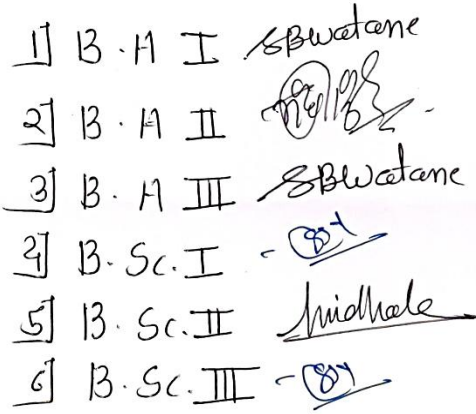 1] B. A I SBWatane
2] B. A II
3] B. A III SBWatane
4] B. Sc. I
5] B. Sc. II
6] B. Sc. III